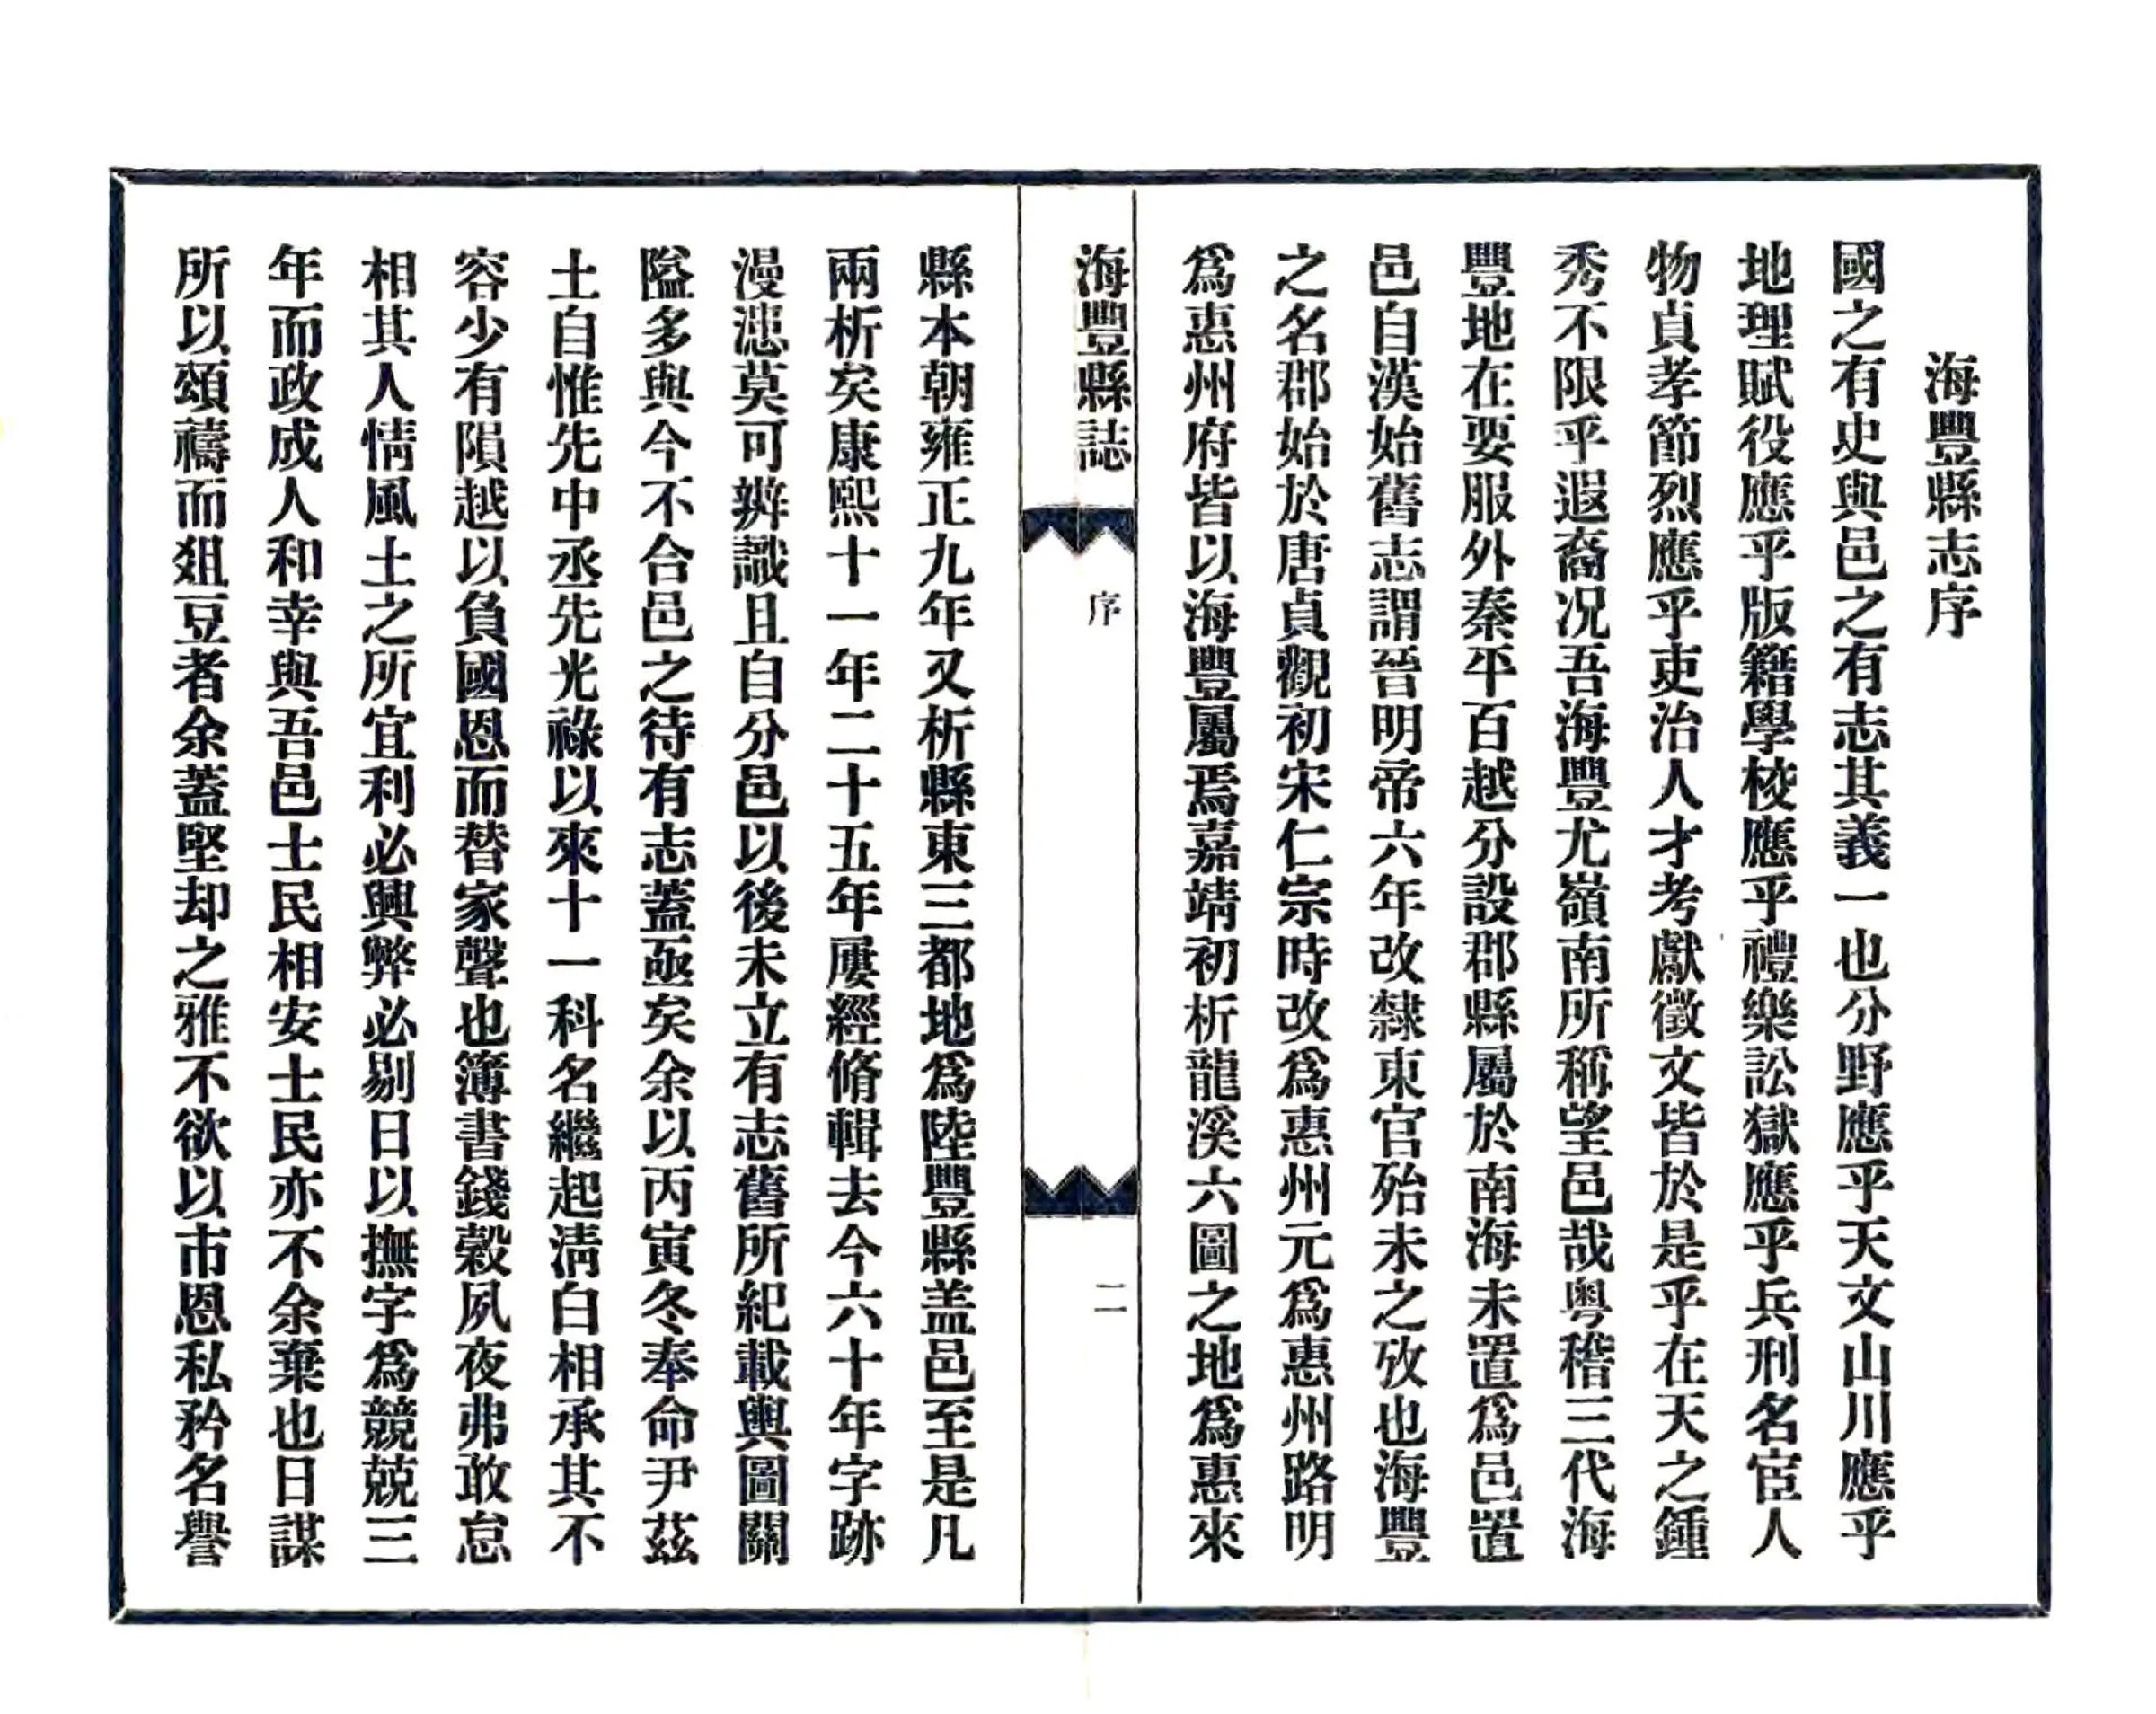 海豐縣志序
國之有史與邑之有志其義一也分野應乎天文山川應乎
地理賦役應乎版籍學校應乎禮樂訟獄應乎兵刑名宦人
物貞孝節烈應乎吏治人才考獻徵文皆於是乎在天之鍾
秀不限乎遐裔况吾海豐尤嶺南所稱望邑哉粤稽三代海
豐地在要服外秦平百越分設郡縣屬於南海未置爲邑置
邑自漢始舊志謂晉明帝六年改隸東官殆未之攷也海豐
之名郡始於唐貞觀初宋仁宗時改爲惠州元爲惠州路明
爲惠州府皆以海豐屬焉嘉靖初析龍溪六圖之地爲惠來
海豐縣誌
序
二
縣本朝雍正九年又析縣東三都地爲陸豐縣盖邑至是凡
兩析矣康熙十一年二十五年屢經脩輯去今六十年字跡
漫漶莫可辨識且自分邑以後未立有志舊所紀載輿圖關
隘多與今不合邑之待有志蓋亟矣余以丙寅冬奉命尹茲
土自惟先中丞先光祿以來十一科名繼起淸白相承其不
容少有隕越以負國恩而替家聲也簿書錢穀夙夜弗敢怠
相其人情風土之所宜利必興弊必剔日以撫字爲競兢三
年而政成人和幸與吾邑士民相安士民亦不余棄也日謀
所以頌禱而俎豆者余蓋堅却之雅不欲以市恩私矜名譽